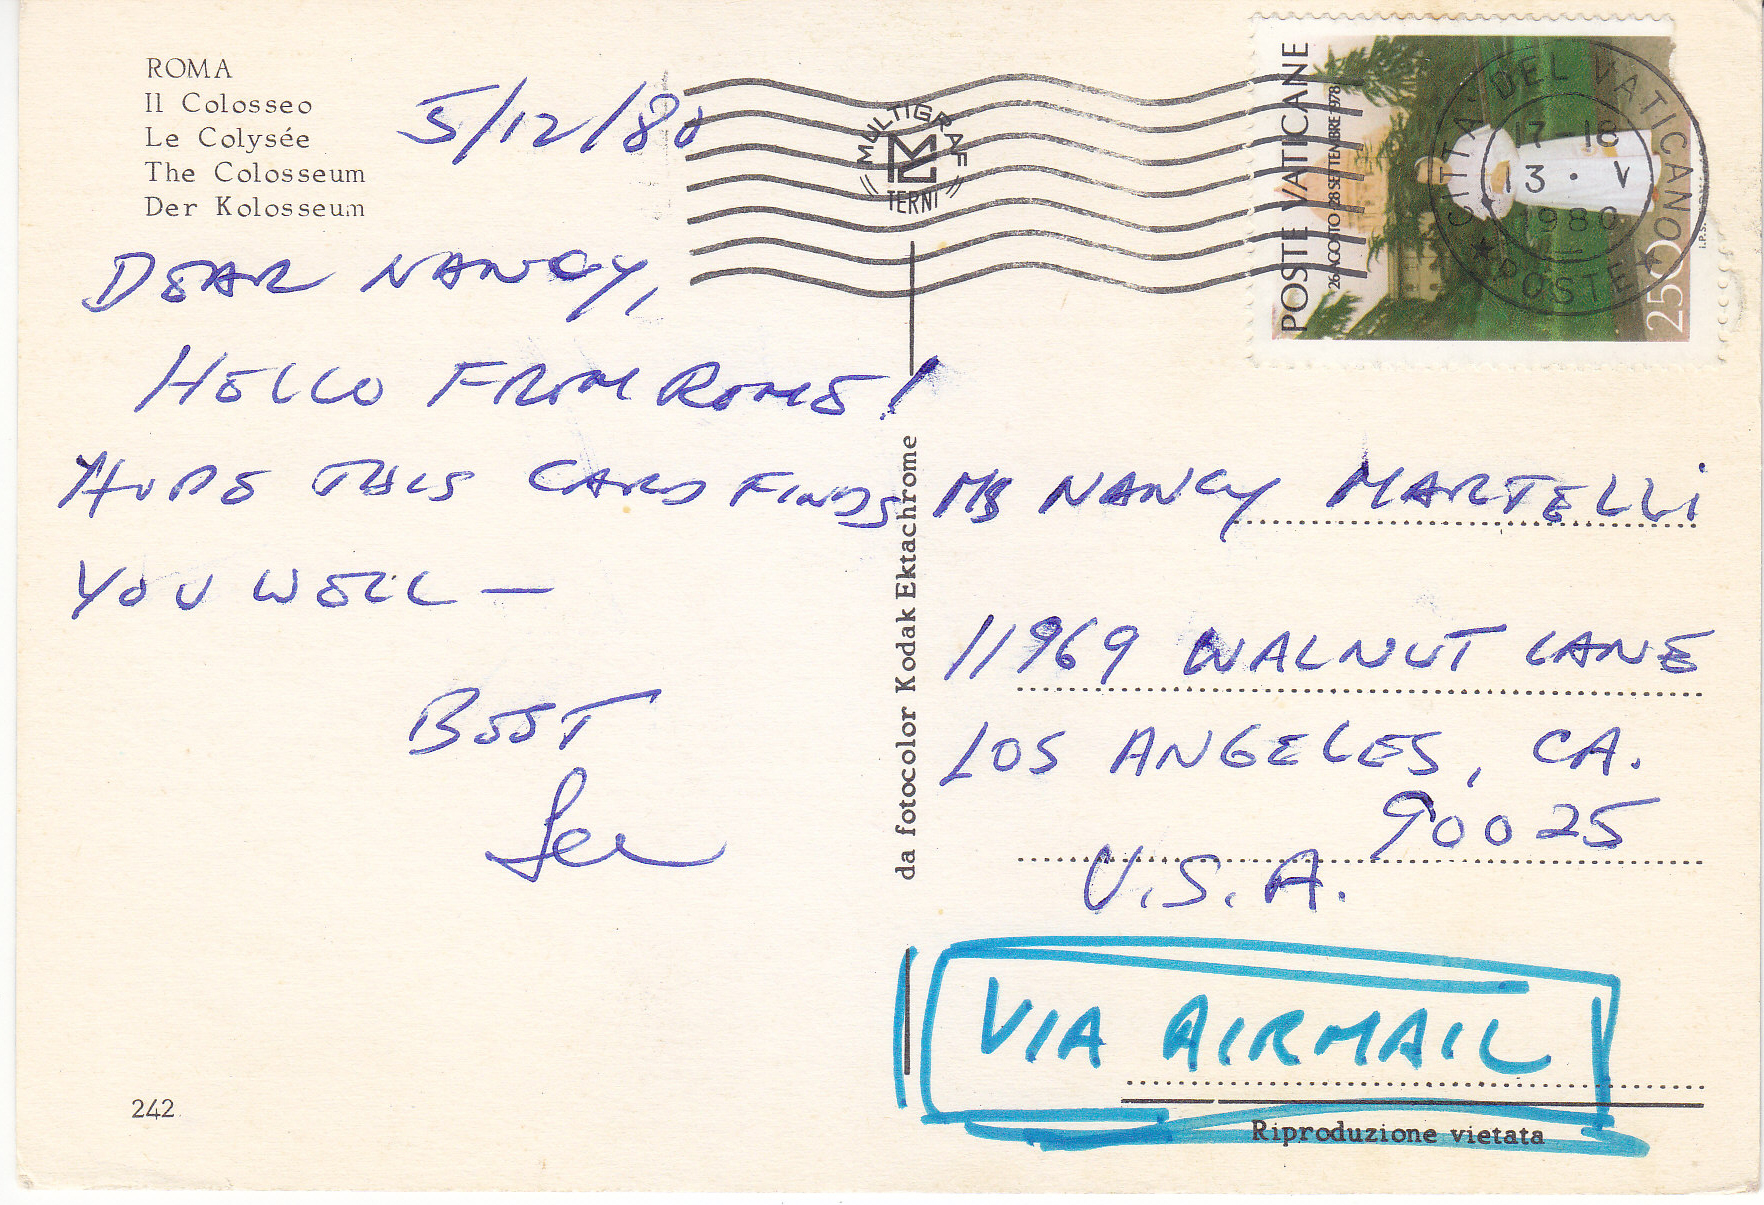 ROMA
Il Colosseo
Le Colysée
The Colosseum
Der Kolosseum
5/12/80
MULTIGRAF
TERNI
POSTE VATICANE
26 AGOSTO 28 SETTEMBRE 1978
250
I.P.S.
CITTA' DEL VATICANO
17-18
13 · V
1980
POSTE
DEAR NANCY,
HELLO FROM ROME!
HOPE THIS CARD FINDS
YOU WELL —
BEST
Lee
da fotocolor Kodak Ektachrome
MS NANCY MARTELLI
11969 WALNUT LANE
LOS ANGELES, CA.
90025
U.S.A.
VIA AIRMAIL
242
Riproduzione vietata